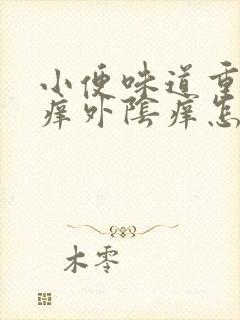 小便味道重
痒外陰痒怎
木零